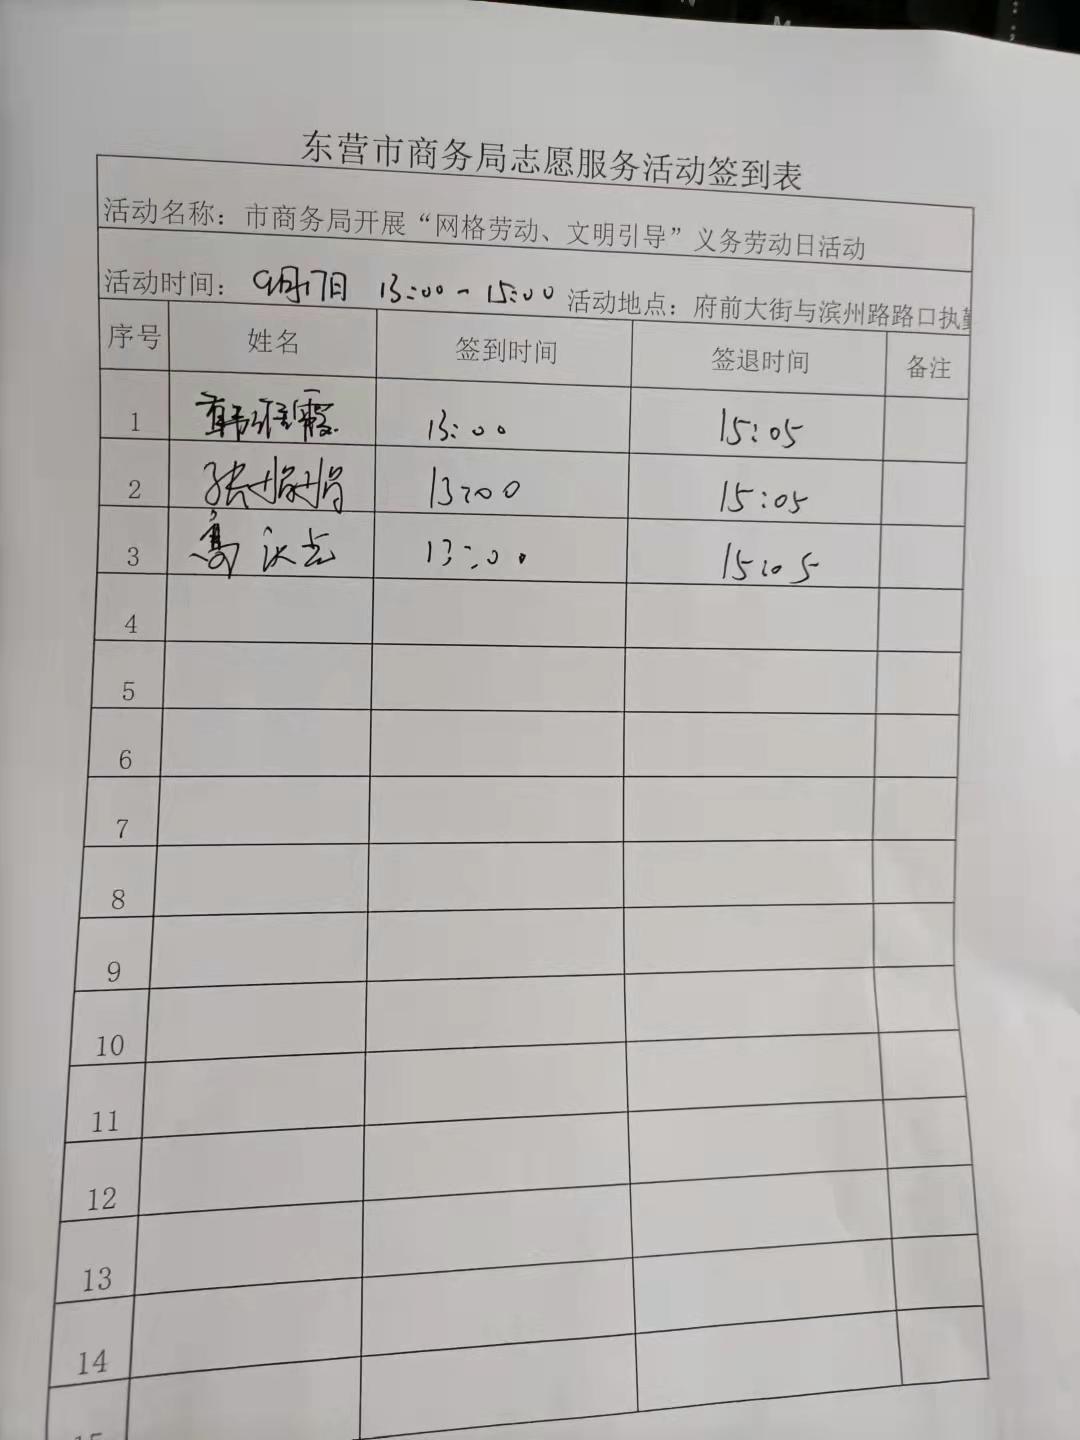 东营市商务局志愿服务活动签到表
活动名称：市商务局开展“网格劳动、文明引导”义务劳动日活动
活动时间：9月17日 13:00-15:00 活动地点：府前大街与滨州路路口执勤
序号 姓名 签到时间 签退时间 备注
1 韩维霞 13:00 15:05
2 张娟娟 13:00 15:05
3 高 13:00 15:05
4
5
6
7
8
9
10
11
12
13
14
15